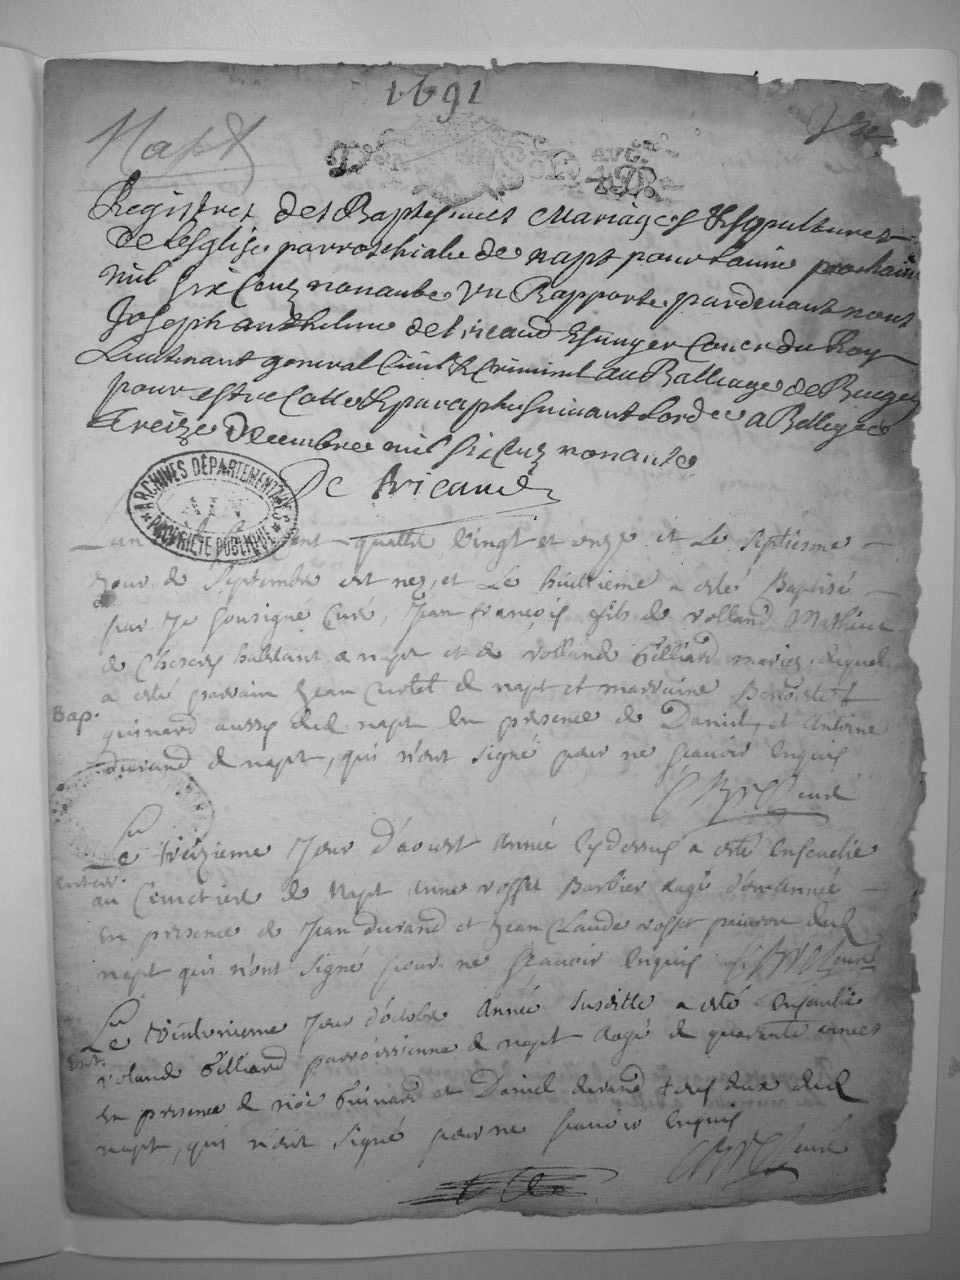 1691
Napt
Registres des Baptesmes Mariages & Sepultures
de lEsglise parrochialle de napt pour lannee prochaine
mil six Cens nonante Un Rapporte pardevant nous
Joseph anthelme de tricaud Escuyer Coner du Roy
Lieutenant general Civil & Criminel au Balliage de Bugey
pour estre Cotte & paraphe suivant lordce a Belley ce
treize decembre mil six Cens nonante
De tricaud
ARCHIVES DÉPARTEMENTALES
AIN
PROPRIÉTÉ PUBLIQUE
Lan quattre vingt et onze et Le septiesme
jour de Septembre est nez, et Le huittieme a esté Baptisé
par Je sousigné Curé, Jean françois fils de rolland Mathieu
de Chesery habitant a napt et de rollande Gilliard mariez, duquel
a esté parrain Jean Curtet de napt et marraine Benoiste
Bap.
guinard aussy dud napt En presence de Daniel, et Antoine
durand de napt, qui n'ont signé pour ne scavoir Enquis
Curé
Le treizieme Jour d'aoust Année cy dessus a esté Ensevelie
Enterr.
au Cemetiere de Napt Anne rosset Barbier aagé d'une Année
En presence de Jean durand et Jean Claude rosset dud
napt qui n'ont signé pour ne scavoir Enquis Curé
Le Jour d'octobre Année susditte a esté Ensevelie
Entr.
rolande Gilliard parroissienne de napt aagé de quarante années
En presence de Guinard et Daniel durand tous deux dud
napt, qui n'ont signé pour ne scavoir Enquis
Curé